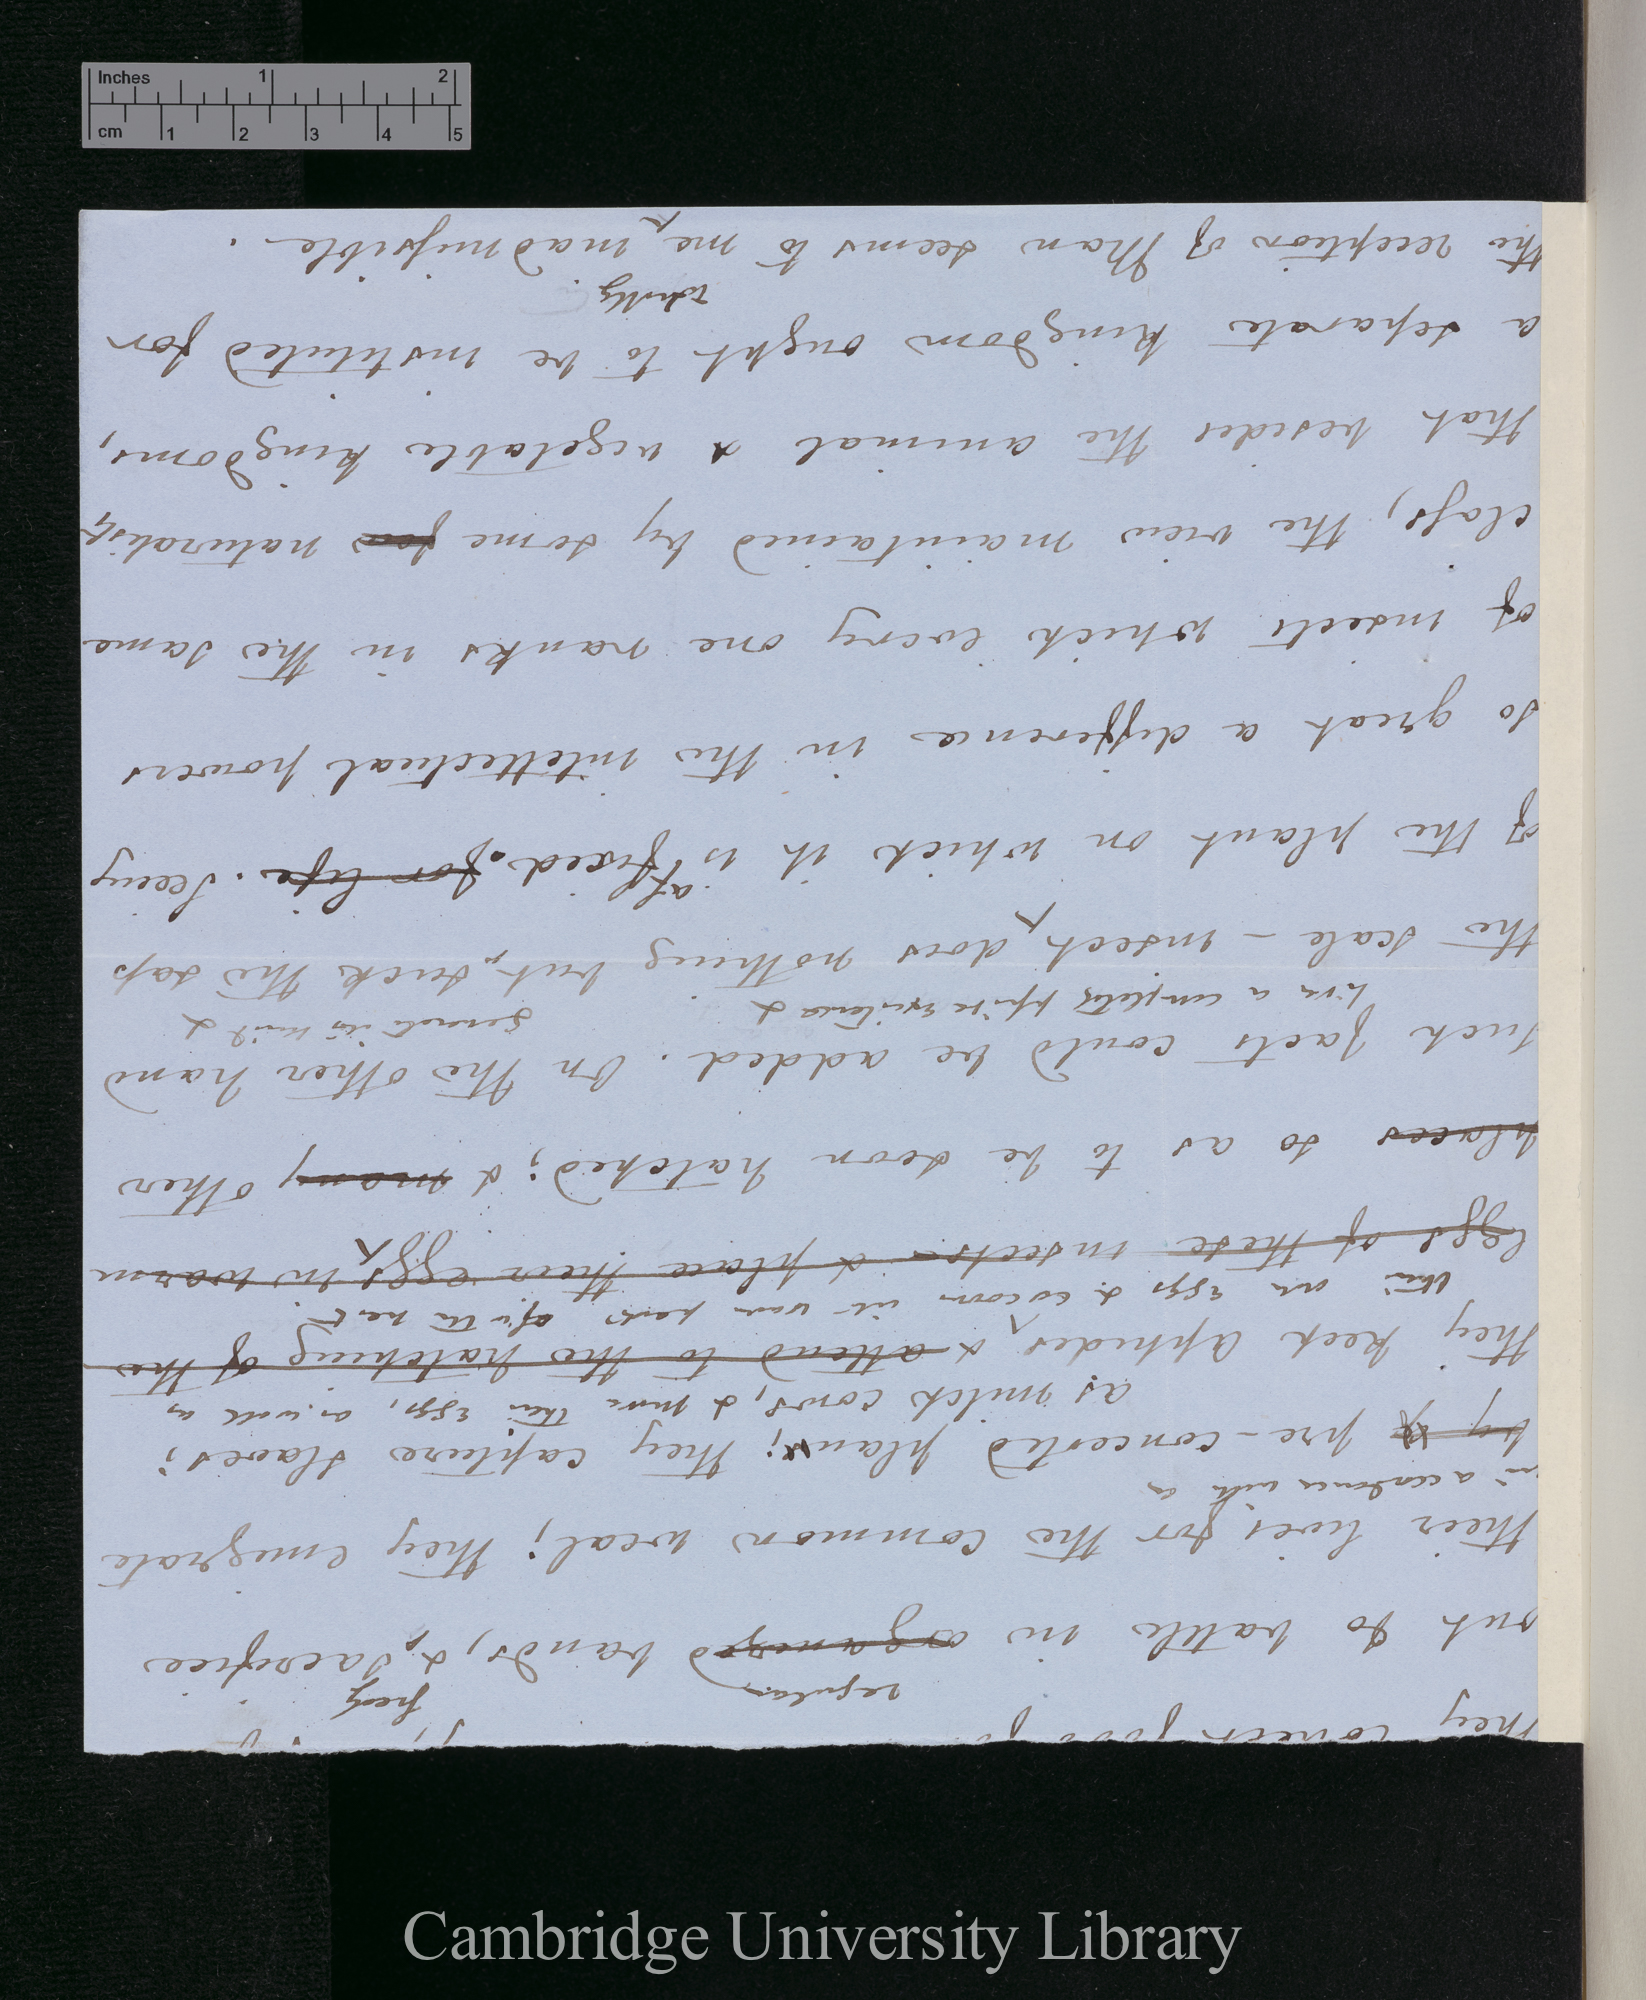 Inches 1 2
cm 1 2 3 4 5
They collect food
regular freely
out to battle in organized bands, & sacrifice
their lives for the common weal; they emigrate
in accordance with a
by a pre-concerted plan; they capture slaves;
as milch cows, & move their eggs, as well as
They keep aphides & attend to the hatching of the
their own eggs & cocoons into warm parts of the nest
Eggs of these insects & place their eggs in warm
places so as to be soon hatched; & many other
Such facts could be added. On the other hand
live a completely existence & generate its kind &
the scale-insect does nothing but suck the sap
of the plant on which it is affixed for life. Seeing
so great a difference in the intellectual powers
of insects which every one ranks in the same
class, the view maintained by some few naturalists,
that besides the animal & vegetable kingdoms,
a separate kingdom ought to be instituted for
wholly
the reception of Man seems to me inadmissible.
Cambridge University Library